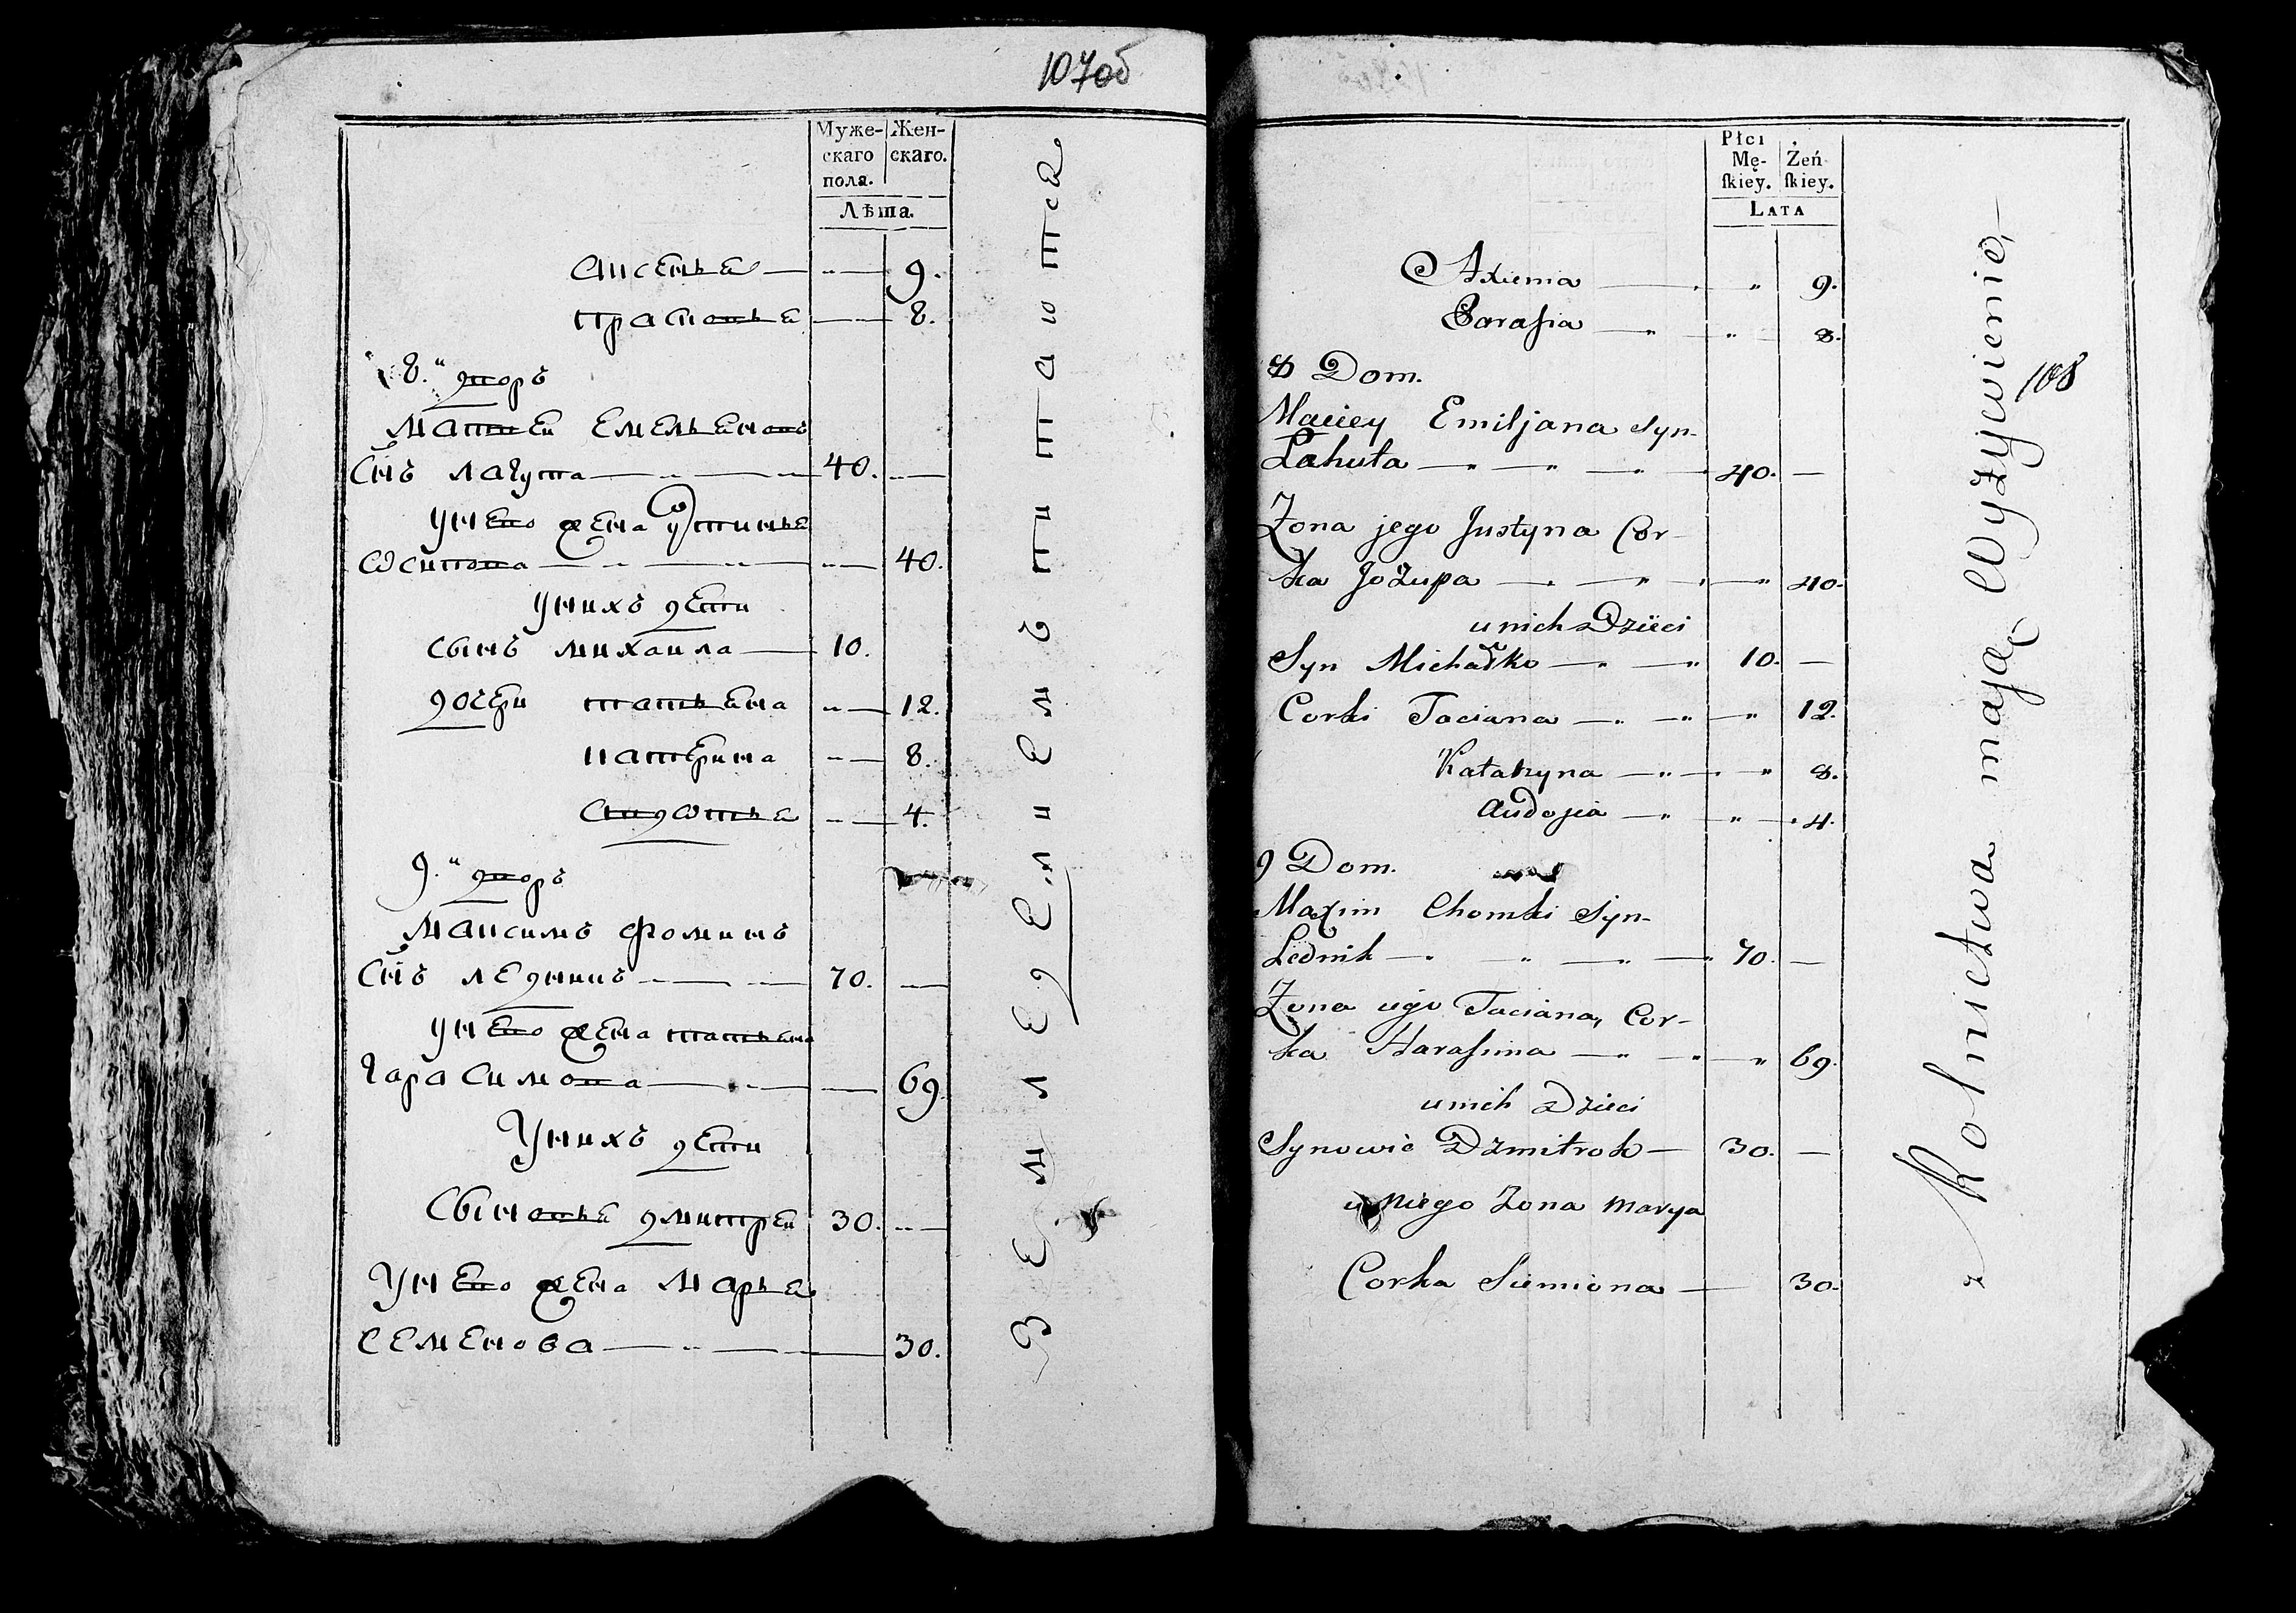 107об
Муже- Жен-
скаго скаго.
пола.
Лѣта.
аксенья 9.
прасковья 8.
8.й дворъ
матвей емельяновъ
снъ лагута 40. —
унево жена устинья
осипова 40.
унихъ дети
сынъ михаила 10.
дочери татьяна 12.
катерина 8.
авдотья 4.
9.й дворъ
максимъ фоминъ
снъ ледникъ 70. —
унево жена татьяна
гарасимова 69
Унихъ дети
Сыновья дмитрей 30. —
Унево жена марья
семенова 30.
Земледелиемъ питаются
Płci
Mę- Żeń
ſkiey. ſkiey.
LATA
Axienia " 9.
Parasia " 8.
8 Dom.
Maciey Emiljana syn
Lahuta 40. —
Zona jego Justyna Cor-
ka Jozupa " 40.
u nich Dzieci
Syn Michałko 10. —
Corki Taciana " 12.
Katarzyna " 8.
Audosia " 4.
9 Dom.
Maxim Chomki syn
Lednik 70. —
Zona iego Taciana, Cor-
ka Harasima " 69.
u nich Dzieci
Synowie Dzmitrok 30. —
u niego Zona Marya
Corka Siemiona 30.
z Rolnictwa mają Wyżywienie,
108